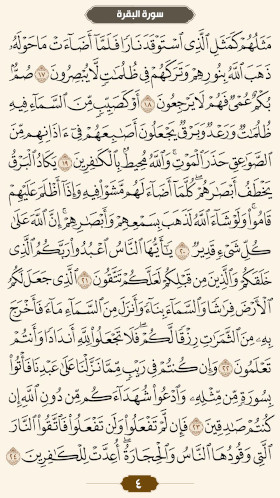 سورة البقرة
مَثَلُهُمْ كَمَثَلِ ٱلَّذِى ٱسْتَوْقَدَ نَارًا فَلَمَّآ أَضَآءَتْ مَا حَوْلَهُۥ
ذَهَبَ ٱللَّهُ بِنُورِهِمْ وَتَرَكَهُمْ فِى ظُلُمَـٰتٍ لَّا يُبْصِرُونَ ١٧ صُمٌّۢ
بُكْمٌ عُمْىٌ فَهُمْ لَا يَرْجِعُونَ ١٨ أَوْ كَصَيِّبٍ مِّنَ ٱلسَّمَآءِ فِيهِ
ظُلُمَـٰتٌ وَرَعْدٌ وَبَرْقٌ يَجْعَلُونَ أَصَـٰبِعَهُمْ فِىٓ ءَاذَانِهِم مِّنَ
ٱلصَّوَٰعِقِ حَذَرَ ٱلْمَوْتِ ۚ وَٱللَّهُ مُحِيطٌۢ بِٱلْكَـٰفِرِينَ ١٩ يَكَادُ ٱلْبَرْقُ
يَخْطَفُ أَبْصَـٰرَهُمْ ۖ كُلَّمَآ أَضَآءَ لَهُم مَّشَوْا۟ فِيهِ وَإِذَآ أَظْلَمَ عَلَيْهِمْ
قَامُوا۟ ۚ وَلَوْ شَآءَ ٱللَّهُ لَذَهَبَ بِسَمْعِهِمْ وَأَبْصَـٰرِهِمْ ۚ إِنَّ ٱللَّهَ عَلَىٰ
كُلِّ شَىْءٍ قَدِيرٌ ٢٠ يَـٰٓأَيُّهَا ٱلنَّاسُ ٱعْبُدُوا۟ رَبَّكُمُ ٱلَّذِى
خَلَقَكُمْ وَٱلَّذِينَ مِن قَبْلِكُمْ لَعَلَّكُمْ تَتَّقُونَ ٢١ ٱلَّذِى جَعَلَ لَكُمُ
ٱلْأَرْضَ فِرَٰشًا وَٱلسَّمَآءَ بِنَآءً وَأَنزَلَ مِنَ ٱلسَّمَآءِ مَآءً فَأَخْرَجَ
بِهِۦ مِنَ ٱلثَّمَرَٰتِ رِزْقًا لَّكُمْ ۖ فَلَا تَجْعَلُوا۟ لِلَّهِ أَندَادًا وَأَنتُمْ
تَعْلَمُونَ ٢٢ وَإِن كُنتُمْ فِى رَيْبٍ مِّمَّا نَزَّلْنَا عَلَىٰ عَبْدِنَا فَأْتُوا۟
بِسُورَةٍ مِّن مِّثْلِهِۦ وَٱدْعُوا۟ شُهَدَآءَكُم مِّن دُونِ ٱللَّهِ إِن
كُنتُمْ صَـٰدِقِينَ ٢٣ فَإِن لَّمْ تَفْعَلُوا۟ وَلَن تَفْعَلُوا۟ فَٱتَّقُوا۟ ٱلنَّارَ
ٱلَّتِى وَقُودُهَا ٱلنَّاسُ وَٱلْحِجَارَةُ ۖ أُعِدَّتْ لِلْكَـٰفِرِينَ ٢٤
٤